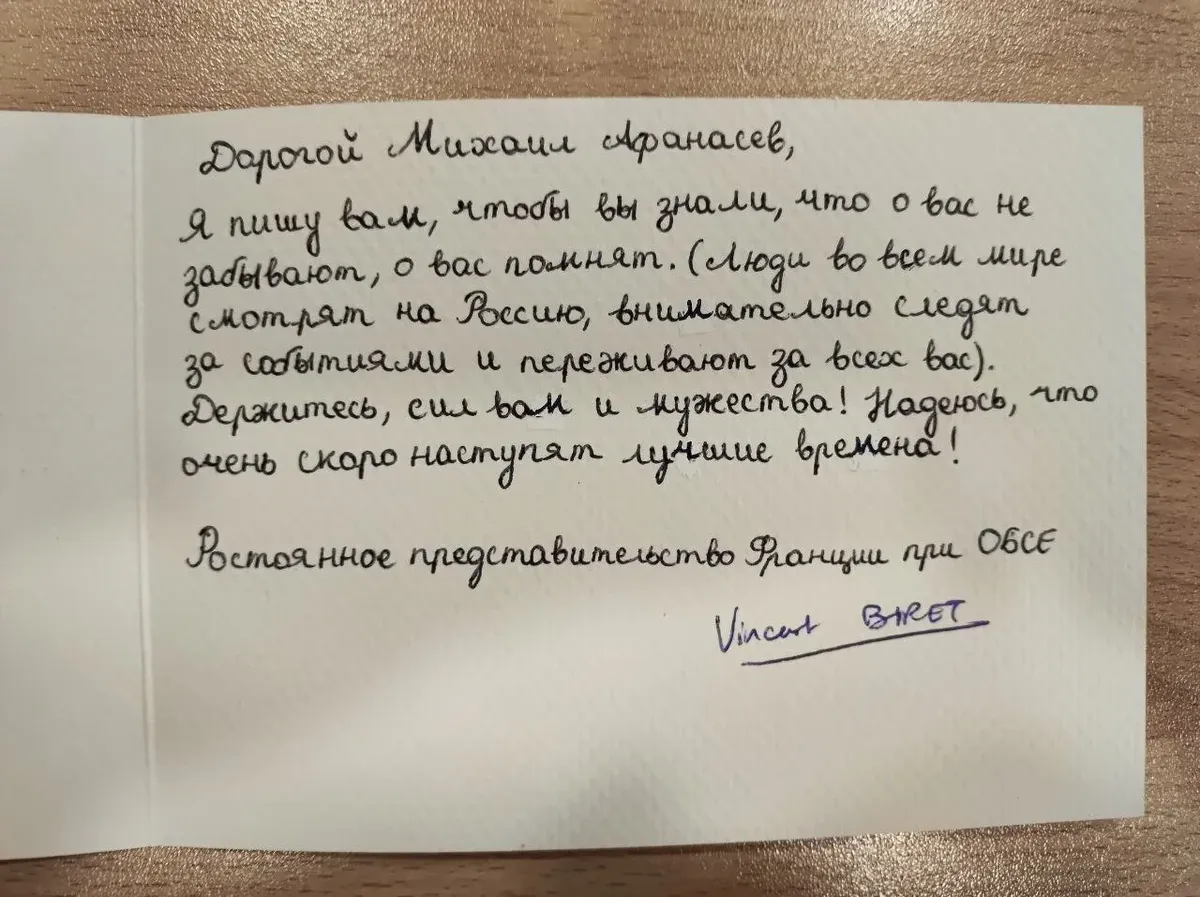 Дорогой Михаил Афанасев,
Я пишу вам, чтобы вы знали, что о вас не
забывают, о вас помнят. (Люди во всем мире
смотрят на Россию, внимательно следят
за событиями и переживают за всех вас).
Держитесь, сил вам и мужества! Надеюсь, что
очень скоро наступят лучшие времена!
Постоянное представительство Франции при ОБСЕ
Vincent BARET